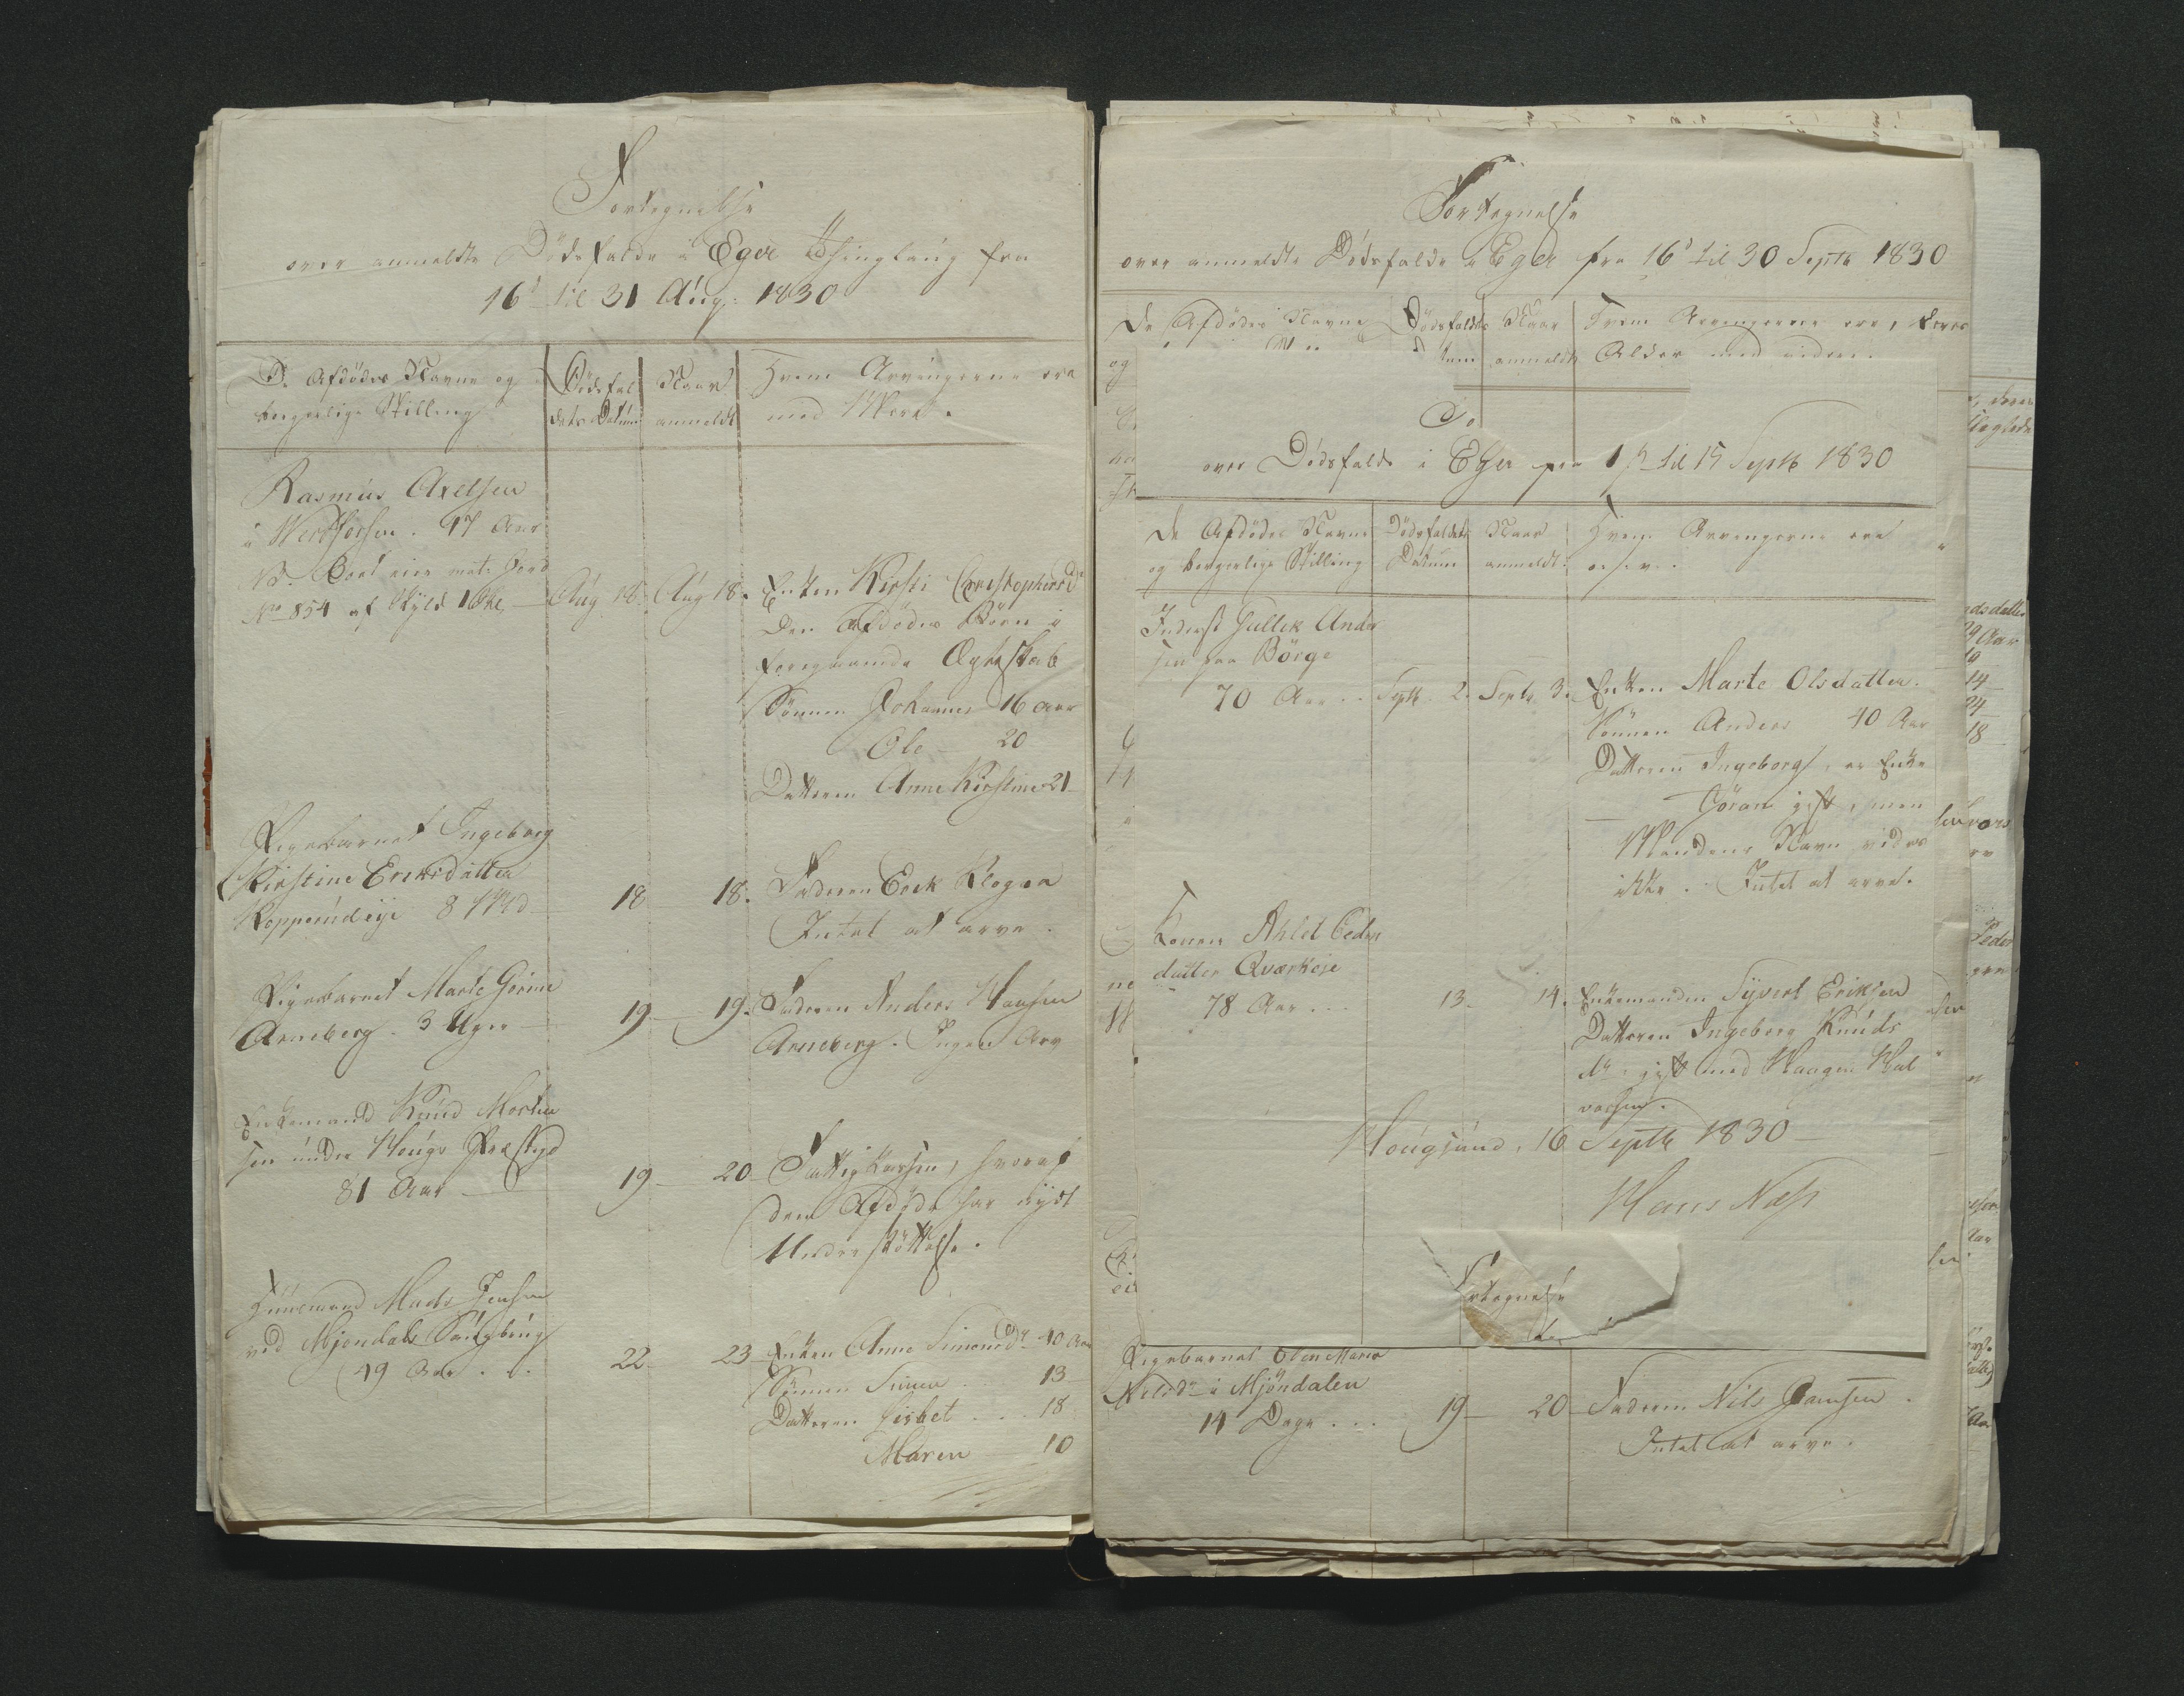 Fortegnelse
over anmeldte Dödsfalde i Eger Thinglaug fra
16d til 31 Aug: 1830
De Afdödes Navne og
borgerlige Stilling
Dödsfal
dets Datum
Naar
anmeldt
Hvem Arvingerne ere
med Mere.
Rasmus Axelsen
i Aar
NB. matr: Jord
No 854 af Skyld
Aug 18.
Aug 18.
Enken Kirsti Christophersdr
Den Afdödes Börn i
Ægteskab
Sönnen Johannes 16 aar
Ole 20
Datteren Anne Kirstine 21
Pigebarnet Ingeborg
Kirstine Eriksdatter
8 Md
18
18.
Faderen Erik
Intet at arve.
Pigebarnet Marte Gorine
Arneberg. 3 Uger
19
19.
Faderen Anders Hansen
Arneberg. Ingen Arv
Enkemand Knud Morten
sen under Hougs Præstgd
81 Aar
19
20
Fattigkassen, hvoraf
den Afdöde har nydt
Understöttelse.
Huusmand Mads Jensen
ved Mjöndals Saugbrug
49 Aar . .
22
23
Enken Anne Simensdr 40 Aar
Sönnen Simen 13
Datteren Lisbet . . . 18
Maren 10
Fortegnelse
over anmeldte Dödsfalde i Eger fra 16d til 30 Septb 1830
De Afdödes Navne
Dödsfaldets
Naar
anmeldt
Hvem Arvingerne ere, deres
Alder med videre.
Do
over Dödsfalde i Eger fra 1ste til 15 Septb 1830
De Afdödes Navne
og borgerlige Stilling
Dödsfaldets
Datum
Naar
anmeldt.
Hvem Arvingerne ere
o. s. v.
Inderst Gullik Ander
sen paa Börge
70 Aar . .
Septb. 2.
Septb. 3.
Enken Marte Olsdatter.
Sönnen Anders 40 Aar
Datteren Ingeborg, er Enke
Göran gift, men
Mandens Navn vides
ikke. Intet at arve.
Konen Ahlet Peders
datter Qværkeje
78 Aar . . .
13.
14.
Enkemanden Syvert Eriksen
Datteren Ingeborg Knuds
dr. gift med Haagen Hal
vorsen.
Hougsund, 16 Septb 1830
Hans Næss
Fortegnelse
Pigebarnet Olen Maria
Nilsdr i Mjöndalen
14 Dage . . .
19
20
Faderen Nils Hansen.
Intet at arve.